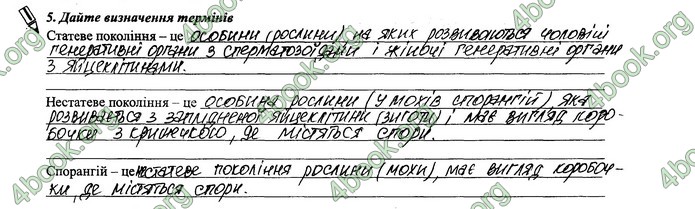 5. Дайте визначення термінів
Статеве покоління – це особини (рослини) на яких розвиваються чоловічі
генеративні органи з сперматозоїдами і жіночі генеративні органи
з яйцеклітинами.
Нестатеве покоління – це особина рослини (у мохів спорангій), яка
розвивається з заплідненої яйцеклітини (зиготи) і має вигляд коро-
бочки з кришечкою, де містяться спори.
Спорангій – це нестатеве покоління рослини (мохи), має вигляд коробоч-
ки, де містяться спори.
4book.org